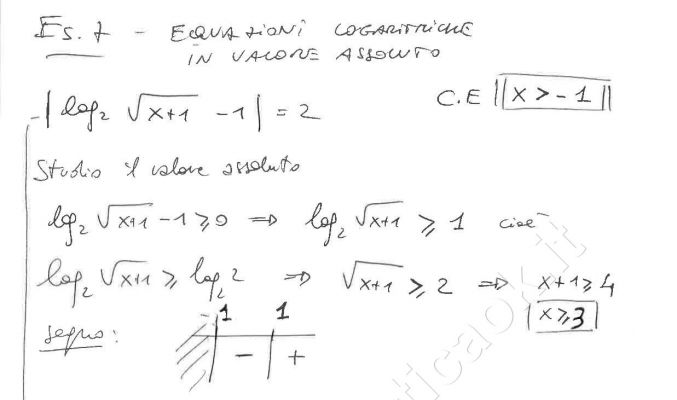 Es. 7 - EQUAZIONI LOGARITMICHE
IN VALORE ASSOLUTO
-|log₂ √x+1 - 1| = 2 C.E ||x > -1||
Studio il valore assoluto
log₂ √x+1 - 1 ≥ 0 ⇒ log₂ √x+1 ≥ 1 cioè
log₂ √x+1 ≥ log₂ 2 ⇒ √x+1 ≥ 2 ⇒ x+1 ≥ 4
x ≥ 3
segno: -1 1
- +